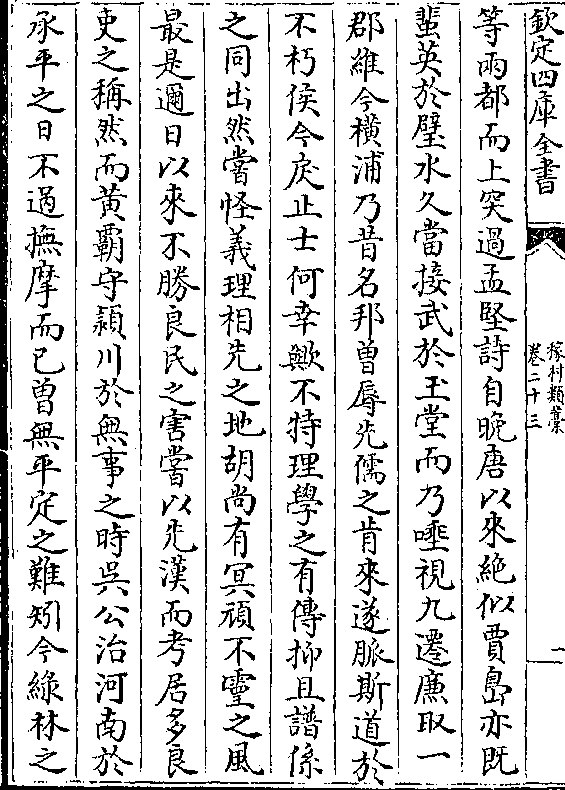 欽定四庫全書
稼村類藁
卷二十三
一
等兩都而上突過孟堅詩自晚唐以來絶似賈島亦既
蜚英於璧水久當接武於玉堂而乃唾視九遷廉取一
郡維今横浦乃昔名邦曾辱先儒之肯來遂脈斯道於
不朽侯今戾止士何幸歟不特理學之有傳抑且譜係
之同出然嘗怪義理相先之地胡尚有冥頑不靈之風
最是邇日以來不勝良民之害嘗以先漢而考居多良
吏之稱然而黄霸守潁川於無事之時吳公治河南於
承平之日不過撫摩而已曽無平定之難矧今緑林之